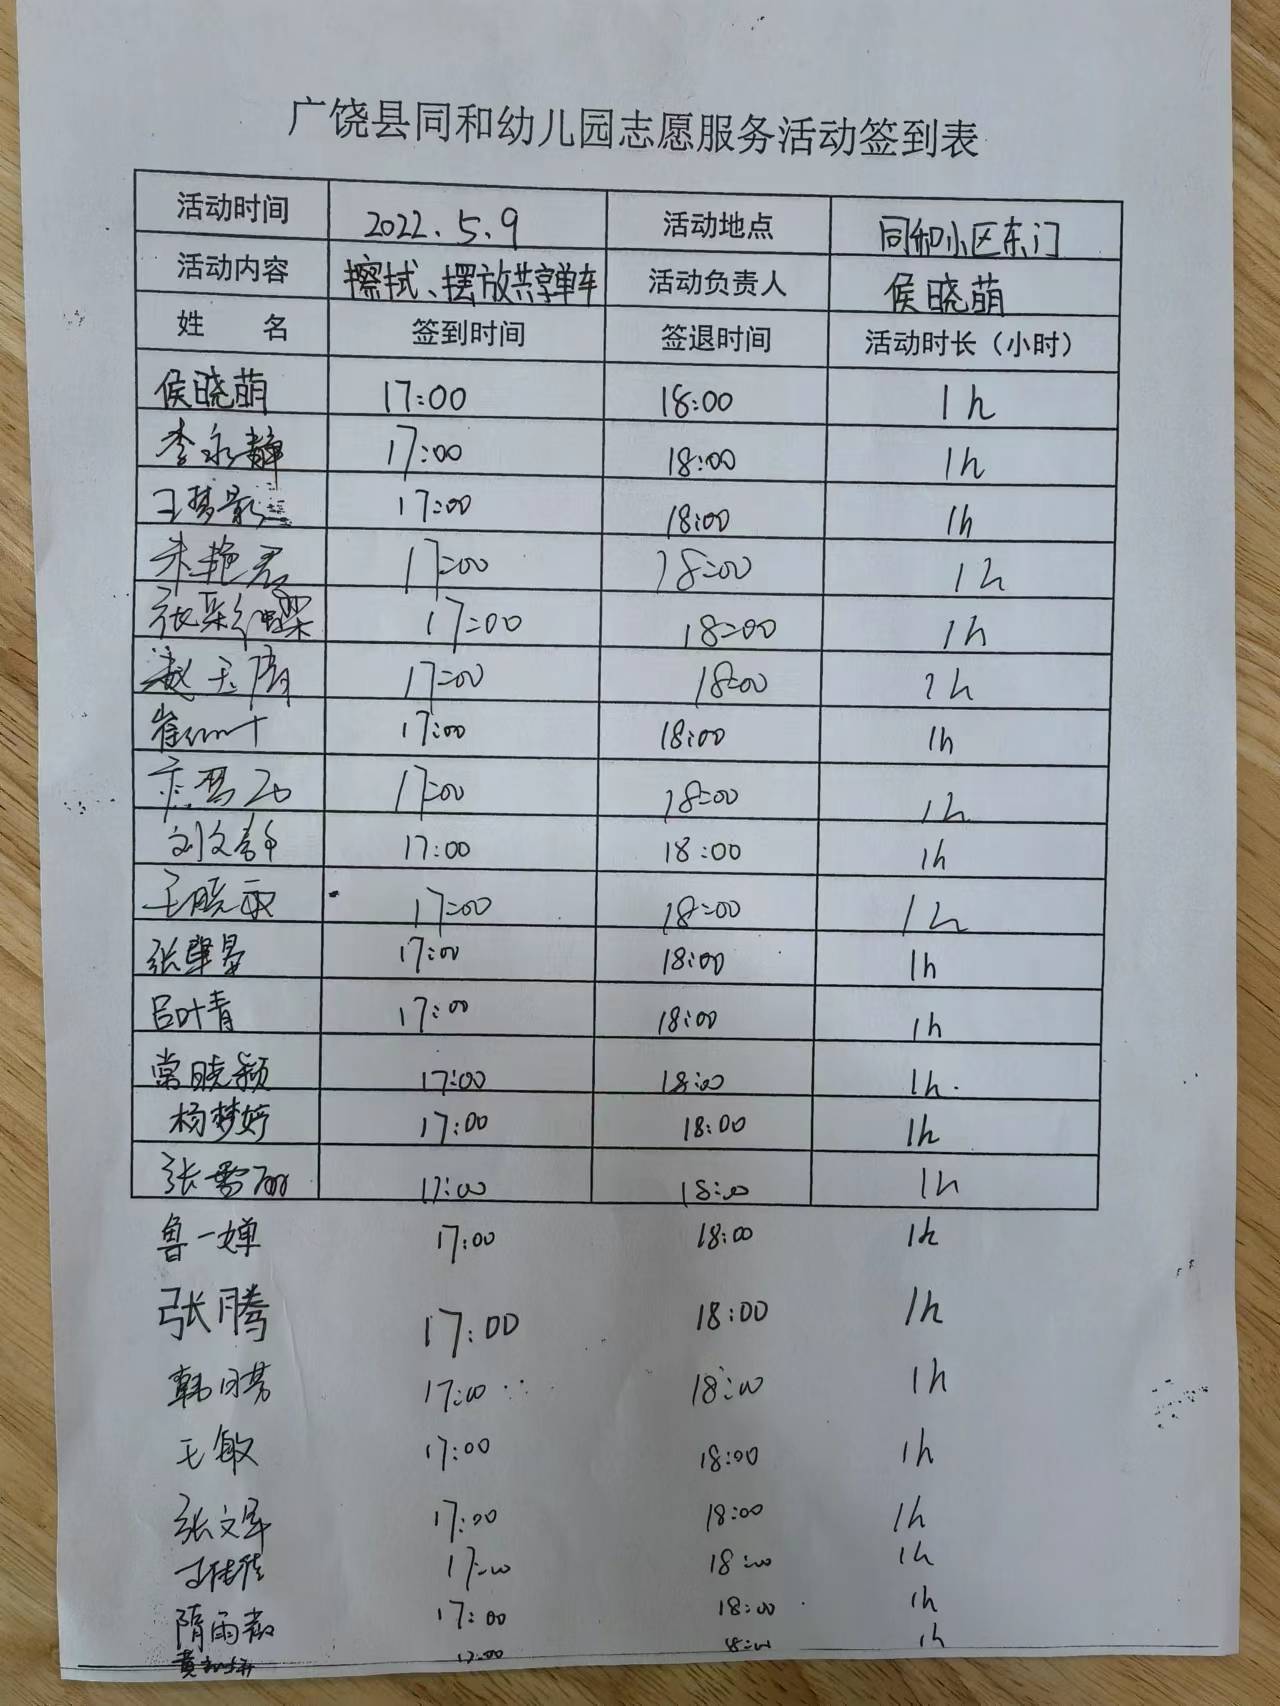 广饶县同和幼儿园志愿服务活动签到表
活动时间 2022.5.9 活动地点 同和小区东门
活动内容 擦拭、摆放共享单车 活动负责人 侯晓萌
姓 名 签到时间 签退时间 活动时长（小时）
侯晓萌 17:00 18:00 1h
李永静 17:00 18:00 1h
王梦影 17:00 18:00 1h
朱艳君 17:00 18:00 1h
张彩蝶 17:00 18:00 1h
赵玉清 17:00 18:00 1h
崔 17:00 18:00 1h
17:00 18:00 1h
刘文静 17:00 18:00 1h
王晓敏 17:00 18:00 1h
张 17:00 18:00 1h
吕叶青 17:00 18:00 1h
常晓颖 17:00 18:00 1h.
杨梦婷 17:00 18:00 1h
张雪丽 17:00 18:00 1h
鲁一婵 17:00 18:00 1h
张腾 17:00 18:00 1h
韩 17:00 18:00 1h
王敏 17:00 18:00 1h
张文军 17:00 18:00 1h
王佳佳 17:00 18:00 1h
隋雨 17:00 18:00 1h
黄 17:00 18:00 1h